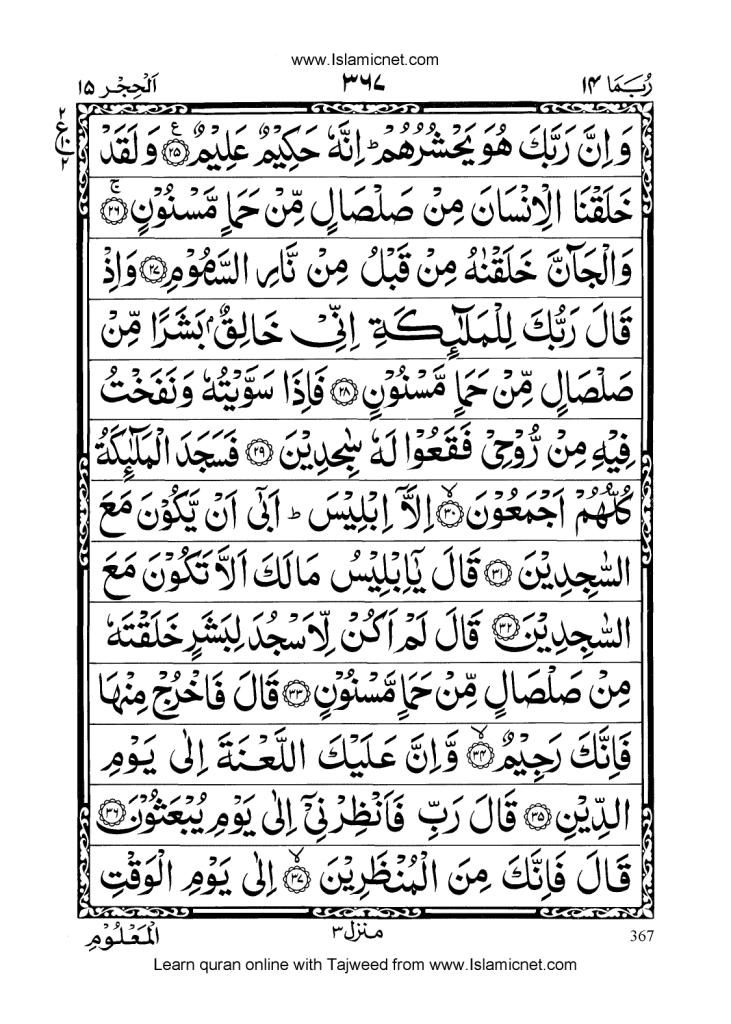 www.Islamicnet.com
رُبَمَا ١٤
٣٦٧
اَلْحِجْر ١٥
وَاِنَّ رَبَّكَ هُوَ يَحْشُرُهُمْ ؕ اِنَّهٗ حَكِيْمٌ عَلِيْمٌ ۟ع ٢٥ وَلَقَدْ
خَلَقْنَا الْاِنْسَانَ مِنْ صَلْصَالٍ مِّنْ حَمَاٍ مَّسْنُوْنٍ ۚ ٢٦
وَالْجَآنَّ خَلَقْنٰهُ مِنْ قَبْلُ مِنْ نَّارِ السَّمُوْمِ ٢٧ وَاِذْ
قَالَ رَبُّكَ لِلْمَلٰٓئِكَةِ اِنِّىْ خَالِقٌۢ بَشَرًا مِّنْ
صَلْصَالٍ مِّنْ حَمَاٍ مَّسْنُوْنٍ ٢٨ فَاِذَا سَوَّيْتُهٗ وَنَفَخْتُ
فِيْهِ مِنْ رُّوْحِىْ فَقَعُوْا لَهٗ سٰجِدِيْنَ ٢٩ فَسَجَدَ الْمَلٰٓئِكَةُ
كُلُّهُمْ اَجْمَعُوْنَ ۙ ٣٠ اِلَّاۤ اِبْلِيْسَ ؕ اَبٰٓى اَنْ يَّكُوْنَ مَعَ
السّٰجِدِيْنَ ٣١ قَالَ يٰۤاِبْلِيْسُ مَالَكَ اَلَّا تَكُوْنَ مَعَ
السّٰجِدِيْنَ ٣٢ قَالَ لَمْ اَكُنْ لِّاَسْجُدَ لِبَشَرٍ خَلَقْتَهٗ
مِنْ صَلْصَالٍ مِّنْ حَمَاٍ مَّسْنُوْنٍ ٣٣ قَالَ فَاخْرُجْ مِنْهَا
فَاِنَّكَ رَجِيْمٌ ۙ ٣٤ وَّاِنَّ عَلَيْكَ اللَّعْنَةَ اِلٰى يَوْمِ
الدِّيْنِ ٣٥ قَالَ رَبِّ فَاَنْظِرْنِىْۤ اِلٰى يَوْمِ يُبْعَثُوْنَ ٣٦
قَالَ فَاِنَّكَ مِنَ الْمُنْظَرِيْنَ ۙ ٣٧ اِلٰى يَوْمِ الْوَقْتِ
٢
ع
٢
367
منزل ٣
الْمَعْلُوْمِ
Learn quran online with Tajweed from www.Islamicnet.com